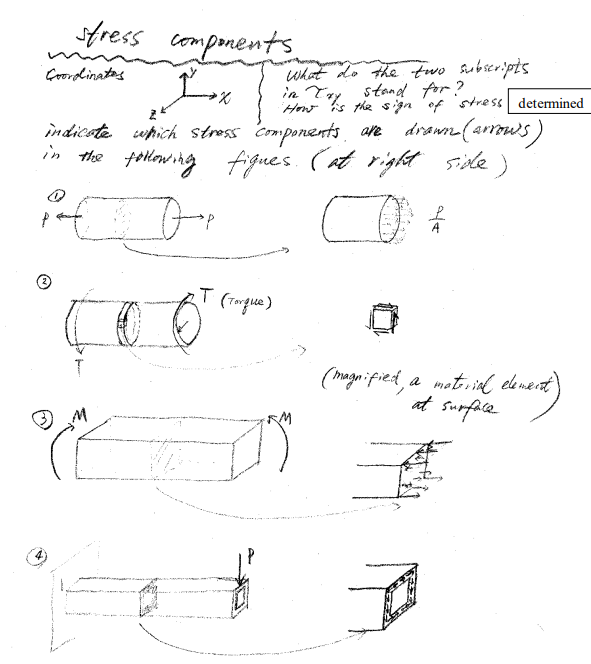 stress components
Coordinates
y
x
z
What do the two subscripts
in τxy stand for?
How is the sign of stress determined
indicate which stress components are drawn (arrows)
in the following figues. (at right side)
①
P
P
P
A
②
T (Torque)
T
(magnified, a material element
at surface)
③
M
M
④
P